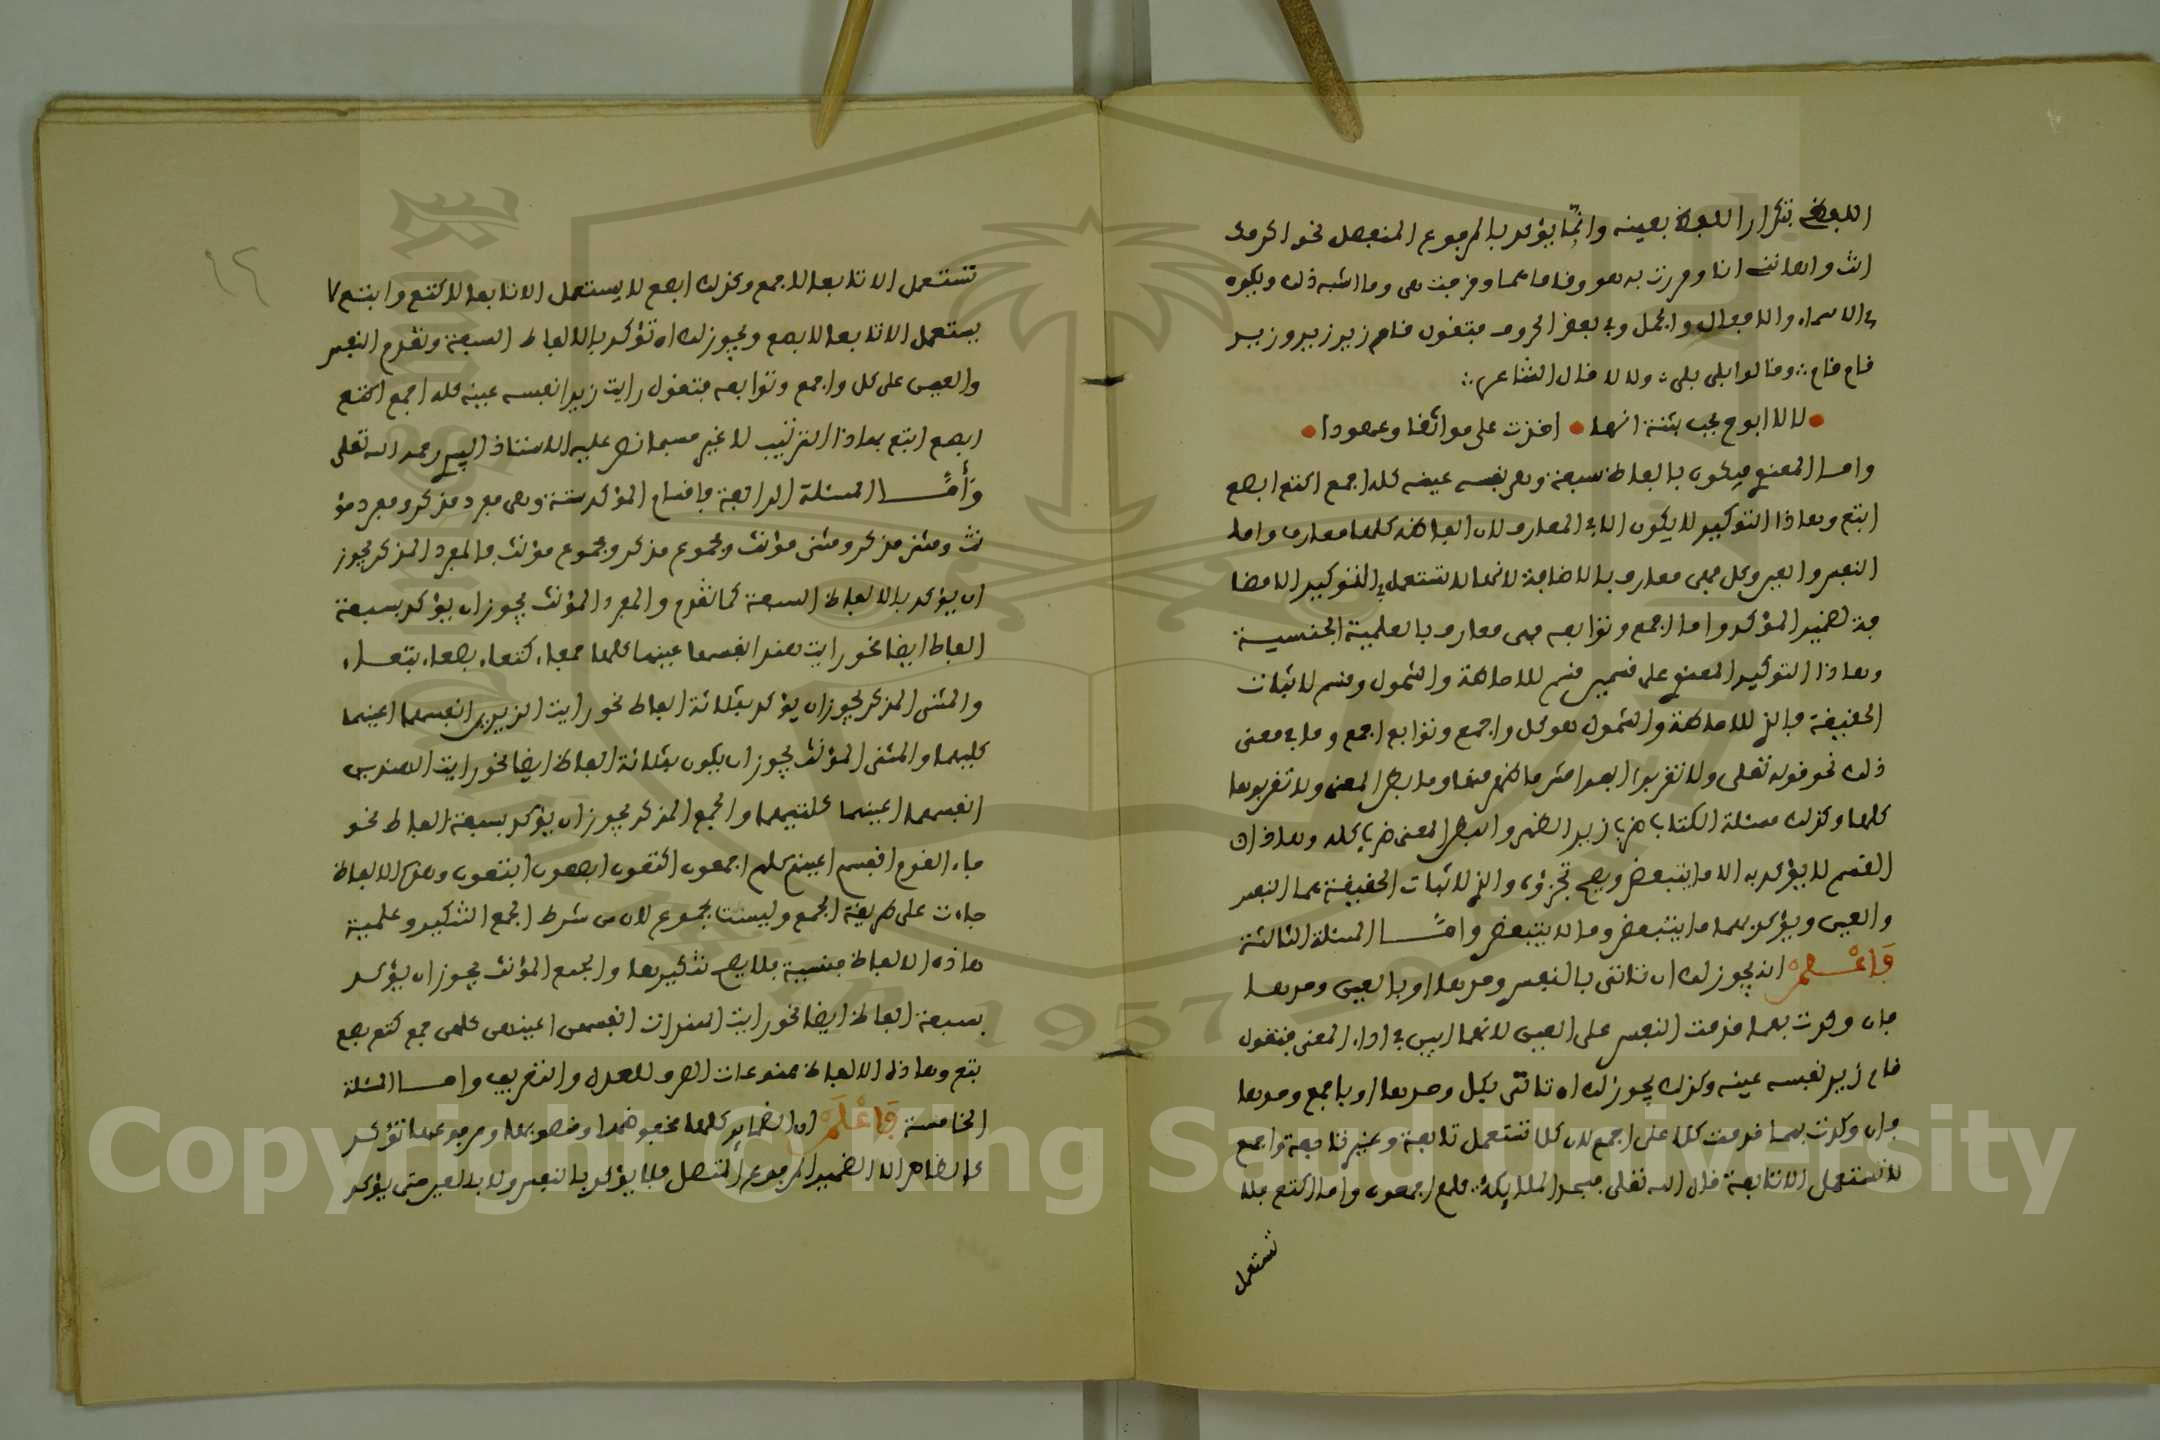 اللفظ بتكرار اللفظ بعينه وانما يؤكد بالمرفوع المنفصل نحو اكرمك
انت وانت انا ومررت به هو وقاما هما وخرجت هي وما اشبه ذلك ويكون
في الاسماء والافعال والجمل وفي بعض الحروف فتقول قام زيد زيد وزيد
قام قام ∴ وقالوا بلى بلى ∴ ولا لا قال الشاعر ∴
لا لا ابوح بحب بثنة انها • اخذت علي مواثقا وعهودا •
واما المعنوي فيكون بالفاظ سبعة وهي نفسه عينه كله اجمع اكتع ابصع
ابتع وهاذا التوكيد لا يكون الا في المعارف لان الفاظه كلها معارف واما
النفس والعين وكل فهي معارف بالاضافة لانها لا تستعمل في التوكيد الا مضا
فة لضمير المؤكد واما اجمع وتوابعه فهي معارف بالعلمية الجنسية
وهاذا التوكيد المعنوي على قسمين قسم للاحاطة والشمول وقسم لاثبات
الحقيقة فالذي للاحاطة والشمول هو كل واجمع وتوابع اجمع وما في معنى
ذلك نحو قوله تعلى ولا تقربوا الفواحش ما ظهر منها وما بطن المعنى ولا تقربوها
كلها وكذلك مسئلة الكتاب ضرب زيد الظهر والبطن المعنى ضرب كله وهاذا
القسم لا يؤكد به الا ما يتبعض ويصح تجزؤه والذي لاثبات الحقيقة هما النفس
والعين ويؤكد بهما ما يتبعض وما لا يتبعض واما المسئلة الثالثة
فاعلم انه يجوز لك ان تاتي بالنفس وحدها او بالعين وحدها
فان وكدت بهما قدمت النفس على العين لانها ابين في اداء المعنى فتقول
قام زيد نفسه عينه وكذلك يجوز لك ان تاتي بكل وحدها او باجمع وحدها
فان وكدت بهما قدمت كلا على اجمع لان كلا تستعمل تابعة وغير تابعة واجمع
لا تستعمل الا تابعة قال الله تعلى فسجد الملايكة كلهم اجمعون واما اكتع فلا
تستعمل
١٢
تستعمل الا تابعا لاجمع وكذلك ابصع لا يستعمل الا تابعا لاكتع وابتع لا
يستعمل الا تابعا لابصع ويجوز لك ان تؤكد بالالفاظ السبعة وتقدم النفس
والعين على كل واجمع وتوابعه فتقول رايت زيدا نفسه عينه كله اجمع اكتع
ابصع ابتع بهاذا الترتيب لا غير حسبما نص عليه الاستاذ رحمه الله تعلى
وأما المسئلة الرابعة فاقسام المؤكد ستة وهي مفرد مذكر ومفرد مؤ
نث ومثنى مذكر ومثنى مؤنث ومجموع مذكر ومجموع مؤنث فالمفرد المذكر يجوز
ان يؤكد بالالفاظ السبعة كما تقدم والمفرد المؤنث يجوز ان يؤكد بسبعة
الفاظ ايضا نحو رايت هندا نفسها عينها كلها جمعاء كتعاء بصعاء بتعاء
والمثنى المذكر يجوز ان يؤكد بثلاثة الفاظ نحو رايت الزيدين انفسهما اعينهما
كليهما والمثنى المؤنث يجوز ان يكون بثلاثة الفاظ ايضا نحو رايت الهندين
انفسهما اعينهما كلتيهما والجمع المذكر يجوز ان يؤكد بسبعة الفاظ نحو
جاء القوم انفسهم اعينهم كلهم اجمعون اكتعون ابصعون ابتعون وهذه الالفاظ
جاءت على طريقة الجمع وليست بجموع لان من شرط الجمع التنكير وعلمية
هاذه الالفاظ جنسية فلا يصح تنكيرها والجمع المؤنث يجوز ان يؤكد
بسبعة الفاظ ايضا نحو رايت الهندات انفسهن اعينهن كلهن جمع كتع بصع
بتع وهاذه الالفاظ ممنوعات الصرف للعدل والتعريف واما المسئلة
الخامسة فاعلم ان الضماير كلها مخفوضها ومنصوبها ومرفوعها تؤكد
كالظاهر الا الضمير المرفوع المتصل فلا يؤكد بالنفس ولا بالعين حتى يؤكد
1957
Copyright © King Saud University